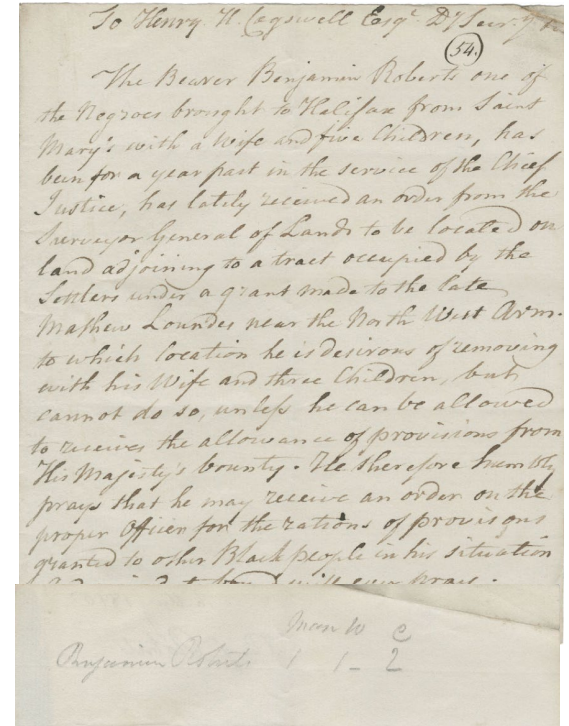 To Henry. H. Cogswell Esqr. Dy Secr.y
54.
The Bearer Benjamin Roberts one of
the Negroes brought to Halifax from Saint
Mary's with a Wife and five Children, has
been for a year past in the service of the Chief
Justice, has lately received an order from the
Surveyor General of Lands to be located on
land adjoining to a tract occupied by the
Settlers under a grant made to the late
Mathew Lowndes near the North West Arm.
to which location he is desirous of removing
with his Wife and three Children, but
cannot do so, unless he can be allowed
to receive the allowance of provisions from
His Majesty's bounty. He therefore humbly
prays that he may receive an order on the
proper Officer for the rations of provisions
granted to other Black people in his situation
will ever pray.
Men W C
Benjamin Roberts 1 1 - 2